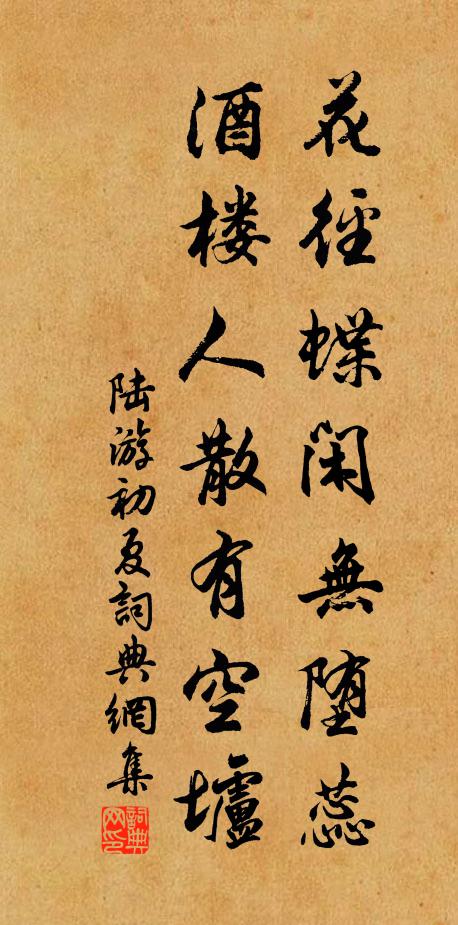 花徑蝶閑無堕蕊
酒楼人散有空壚
陆游初夏詞典網集
詞典網印